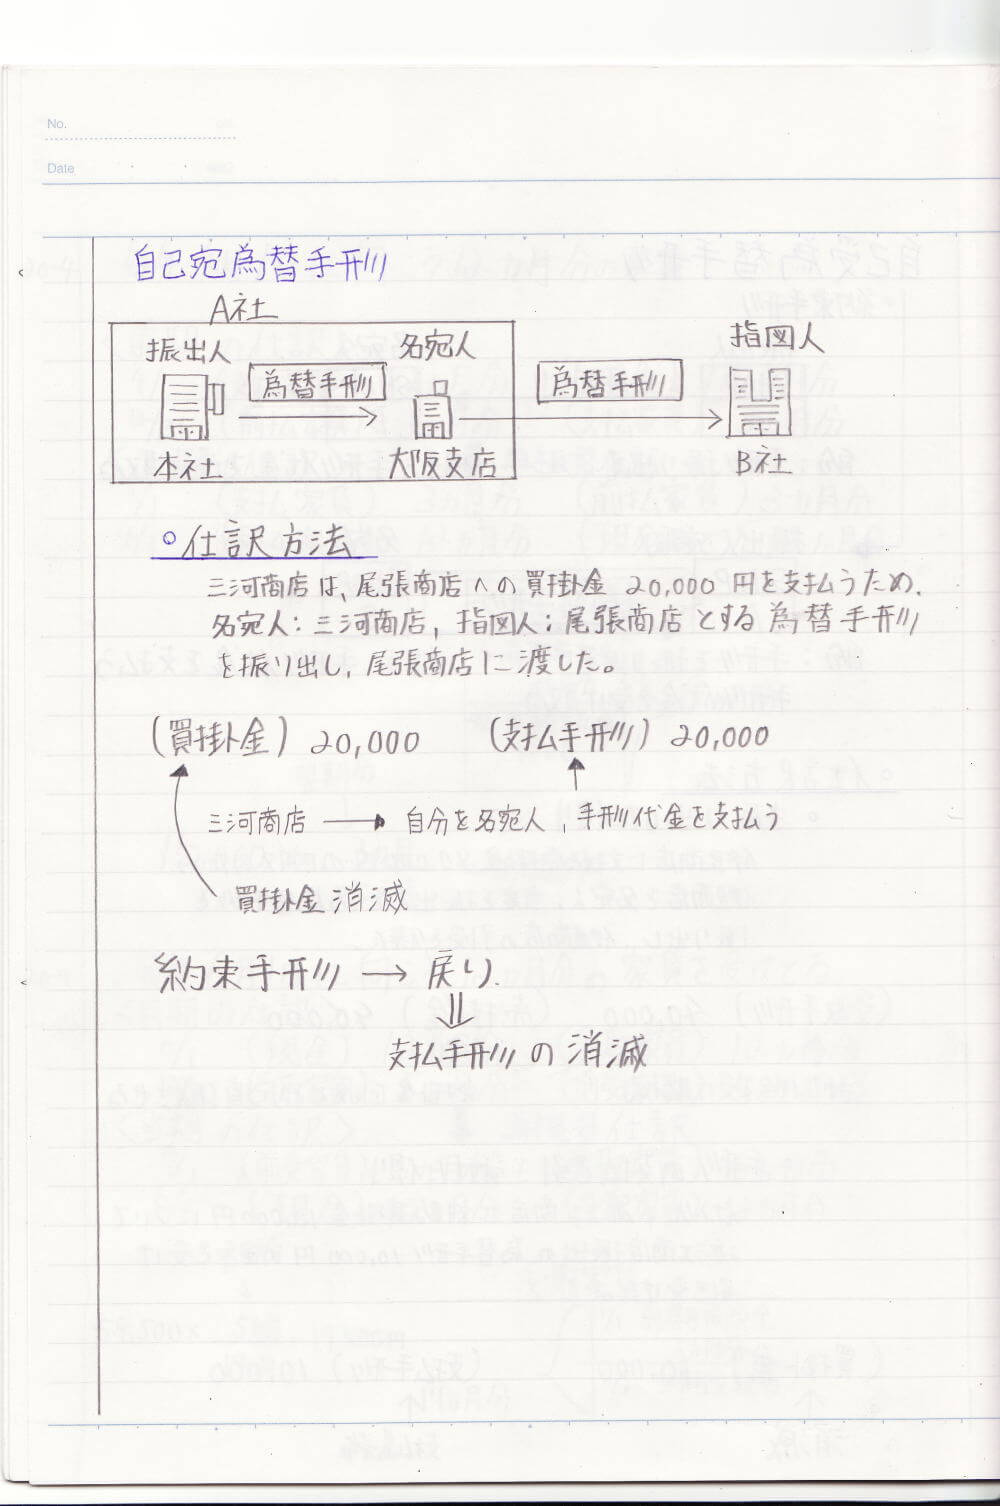 No.
Date
自己宛為替手形
A社
振出人 名宛人 指図人
為替手形 為替手形
本社 大阪支店 B社
○仕訳方法
三河商店は、尾張商店への買掛金 20,000 円を支払うため、
名宛人:三河商店, 指図人:尾張商店とする為替手形
を振り出し、尾張商店に渡した。
(買掛金) 20,000 (支払手形) 20,000
三河商店 → 自分を名宛人,手形代金を支払う
買掛金消滅
約束手形 → 戻り.
⇓
支払手形の消滅